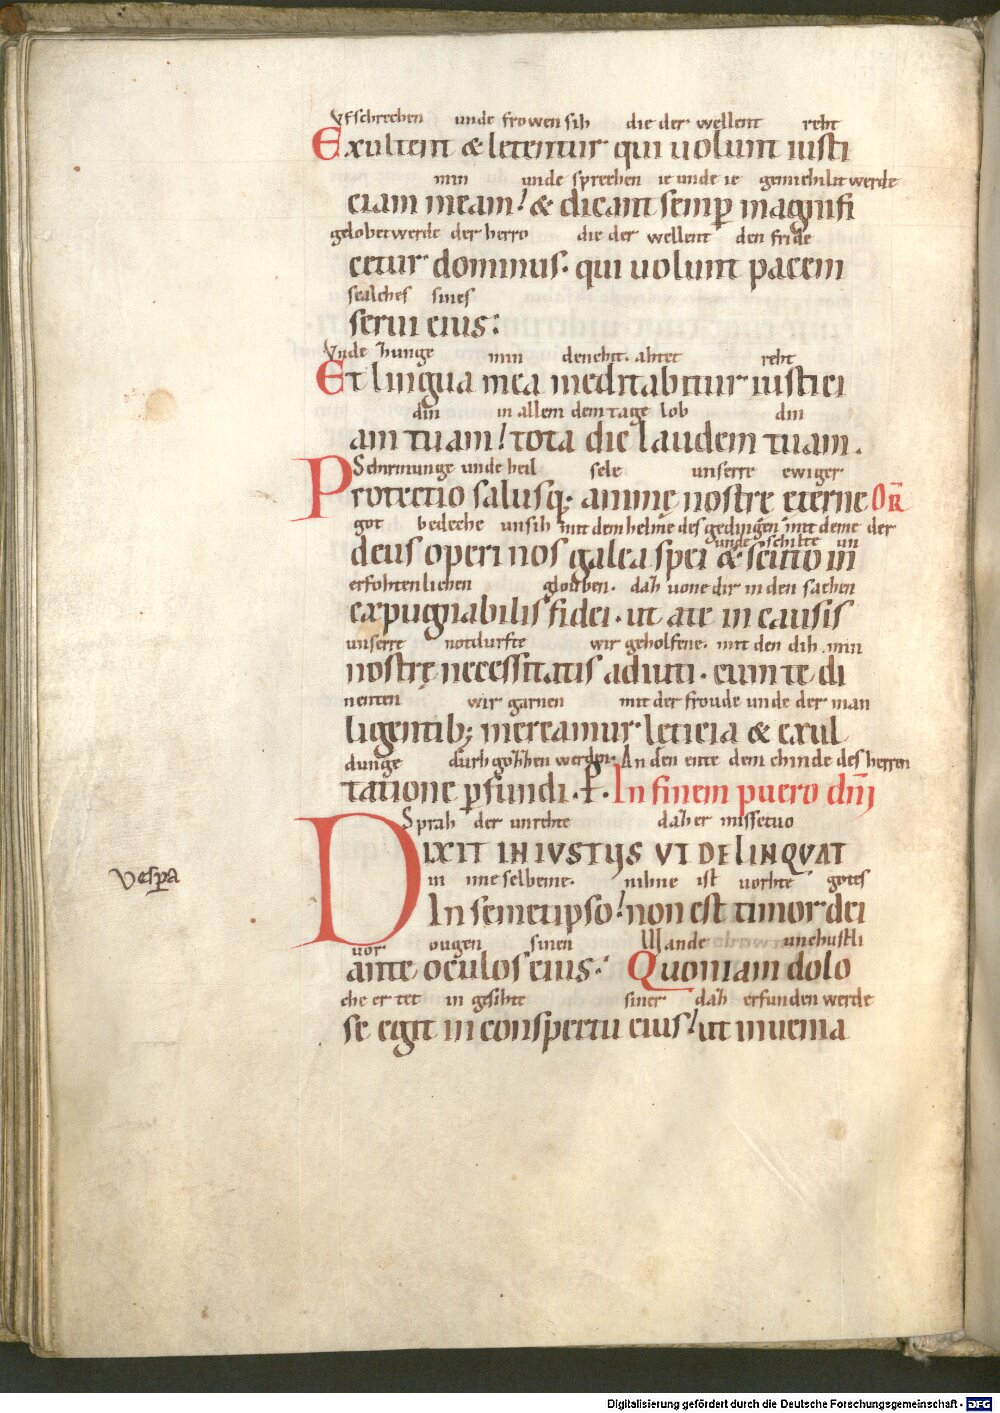 Vfschrechen unde frowen sih die der wellent reht
Exultent & letentur qui uolunt iusti
min unde sprechen ie unde ie gemichilit werde
ciam meam! & dicant semp̄ magnifi
gelobet werde der herro die der wellent den fride
cetur dominus. qui uolunt pacem
scalches sines
serui eius:
Vnde zunge min denchit. ahtet reht
Et lingua mea meditabitur iustici
din in allem dem tage lob din
am tuam! tota die laudem tuam.
Schirmunge unde heil sele unserre ewiger
Protectio salusq; animę nostrę eterne OR̄
got bedeche unsih mit dem helme des gedingen mit deme der
unde schilte un
deus operi nos galea spei & scuto in
erfohtenlichen glouben. daz uone dir in den sachen
expugnabilis fidei. ut a te in causis
unserre notdurfte wir geholfene. mit den dih min
nostrę necessitatis adiuti. cum te di
nenten wir garnen mit der froude unde der man
ligentib; mereamur leticia & exul
dunge durhgozzen werden. An den ente dem chinde des herren
tatione p̱fundi. P. In finem puero dn̄i
Sprah der unrehte daz er missetuo
DIXIT INIVSTUS VT DELINQVAT
in ime selbeme. nihne ist uorhte gotes
In semetipso! non est timor dei
Vesp̱a
uor ougen sinen Wande unchustli
ante oculos eius: Quoniam dolo
che er tet in gesihte siner daz erfunden werde
se egit in conspectu eius! ut inuenia
Digitalisierung gefördert durch die Deutsche Forschungsgemeinschaft - DFG